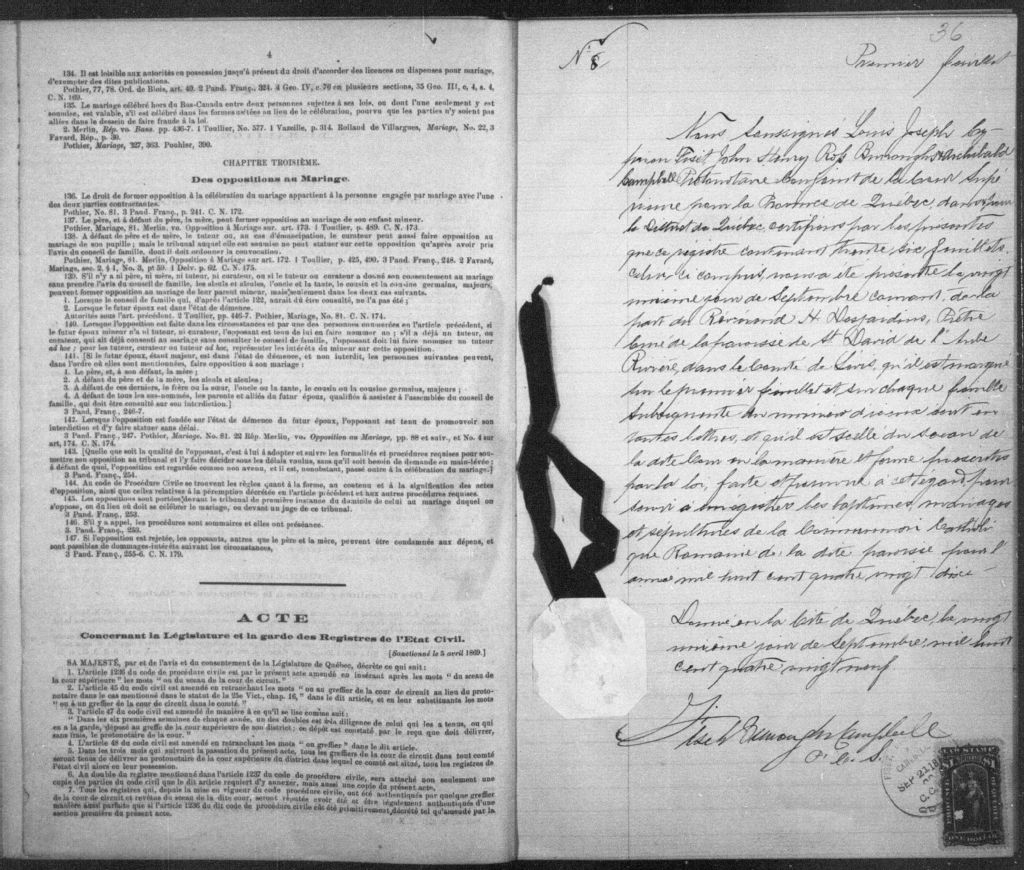 4
134. Il est loisible aux autorités en possession jusqu'à présent du droit d'accorder des licences ou dispenses pour mariage,
d'exempter des dites publications.
Pothier, 77, 78. Ord. de Blois, art. 40. 2 Pand. Franç., 324. 4 Geo. IV, c. 76 en plusieurs sections, 35 Geo. III, c, 4, s. 4,
C. N. 169.
135. Le mariage célébré hors du Bas-Canada entre deux personnes sujettes à ses lois, ou dont l'une seulement y est
soumise, est valable, s'il est célébré dans les formes usitées au lieu de la célébration, pourvu que les parties n'y soient pas
allées dans le dessein de faire fraude à la loi.
2. Merlin, Rép. vo. Bans. pp. 436-7. 1 Toullier, No. 577. 1 Vazeille, p. 314. Rolland de Villargues, Mariage, No. 22, 3
Favard, Rép., p. 30.
Pothier, Mariage, 327, 363. Pouhier, 390.
CHAPITRE TROISIÈME.
Des oppositions au Mariage.
136. Le droit de former opposition à la célébration du mariage appartient à la personne engagée par mariage avec l'une
des deux parties contractantes.
Pothier, No. 81. 3 Pand. Franç., p. 241. C. N. 172.
137. Le père, et à défaut du père, la mère, peut former opposition au mariage de son enfant mineur.
Pothier, Mariage, 81. Merlin. vo. Opposition à Mariage sur. art. 173. 1 Toullier, p. 489. C. N. 173.
138. A défaut de père et de mère, le tuteur ou, au cas d'émancipation, le curateur peut aussi faire opposition au
mariage de son pupille; mais le tribunal auquel elle est soumise ne peut statuer sur cette opposition qu'après avoir pris
l'avis du conseil de famille, dont il doit ordonner la convocation.
Pothier, Mariage, 81. Merlin, Opposition à Mariage sur art. 172. 1 Toullier, p. 425, 490. 3 Pand. Franç., 248. 2 Favard,
Mariage, sec. 2, § 4, No. 3, pt 59. 1 Delv. p. 62. C. N. 175.
139. S'il n'y a ni père, ni mère, ni tuteur, ni curateur, ou si le tuteur ou curateur a donné son consentement au mariage
sans prendre l'avis du conseil de famille, les aïeuls et aïeules, l'oncle et la tante, le cousin et la cousine germains, majeurs,
peuvent former opposition au mariage de leur parent mineur, mais seulement dans les deux cas suivants.
1. Lorsque le conseil de famille qui, d'après l'article 122, aurait du être consulté, ne l'a pas été;
2. Lorsque le futur époux est dans l'état de démence.
Autorités sous l'art. précédent. 2 Toullier, pp. 446-7. Pothier, Mariage, No. 81. C. N. 174.
140. Lorsque l'opposition est faite dans les circonstances et par une des personnes énumérées en l'article précédent, si
le futur époux mineur n'a ni tuteur, ni curateur, l'opposant est tenu de lui en faire nommer un; s'il a déjà un tuteur, ou
curateur, qui ait déjà consenti au mariage sans consulter le conseil de famille, l'opposant doit lui faire nommer un tuteur
ad hoc; pour les tuteur, curateur ou tuteur ad hoc, représenter les intérêts du mineur sur cette opposition.
141. [Si le futur époux, étant majeur, est dans l'état de démence, et non interdit, les personnes suivantes peuvent,
dans l'ordre où elles sont mentionnées, faire opposition à son mariage:
1. Le père, et, à son défaut, la mère;
2. A défaut du père et de la mère, les aïeuls et aïeules;
3. A défaut de ces derniers, le frère ou la sœur, l'oncle ou la tante, le cousin ou la cousine germains, majeurs;
4. A défaut de tous les sus-nommés, les parents et alliés du futur époux, qualifiés à assister à l'assemblée du conseil de
famille, qui doit être consulté sur son interdiction.]
3 Pand. Franç., 246-7.
142. Lorsque l'opposition est fondée sur l'état de démence du futur époux, l'opposant est tenu de promouvoir son
interdiction et d'y faire statuer sans délai.
3 Pand. Franç., 247. Pothier, Mariage. No. 81. 22 Rép. Merlin, vo. Opposition au Mariage, pp. 88 et suiv., et No. 4 sur
art. 174. C. N. 174.
143. [Quelle que soit la qualité de l'opposant, c'est à lui à adopter et suivre les formalités et procédures requises pour sou-
mettre son opposition au tribunal et l'y faire décider sous les délais voulus, sans qu'il soit besoin de demande en main-levée;
à défaut de quoi, l'opposition est regardée comme non avenu, et il est, nonobstant, passé outre à la célébration du mariage.]
3 Pand. Franç., 254.
144. Au code de Procédure Civile se trouvent les règles quant à la forme, au contenu et à la signification des actes
d'opposition, ainsi que celles relatives à la péremption décrétées en l'article précédent et aux autres procédures requises.
145. Les oppositions sont portées devant le tribunal de première instance du domicile de celui au mariage duquel on
s'oppose, ou du lieu où doit se célébrer le mariage, ou devant un juge de ce tribunal.
3 Pand. Franç., 253.
146. S'il y a appel, les procédures sont sommaires et elles ont préséance.
3. Pand. Franç., 253.
147. Si l'opposition est rejetée, les opposants, autres que le père et la mère, peuvent être condamnés aux dépens, et
sont passibles de dommages-intérêts suivant les circonstances,
3 Pand. Franç., 255-6. C. N. 179.
ACTE
Concernant la Législature et la garde des Registres de l'Etat Civil.
[Sanctionné le 5 avril 1869.]
SA MAJESTÉ, par et de l'avis et du consentement de la Législature de Québec, décrète ce qui suit:
1. L'article 1236 du code de procédure civile est par le présent acte amendé en insérant après les mots "du sceau de
la cour supérieure" les mots "ou du sceau de la cour de circuit."
2. L'article 45 du code civil est amendé en retranchant les mots "ou au greffier de la cour de circuit au lieu du proto-
notaire dans le cas mentionné dans le statut de la 25e Vict., chap. 16," dans le dit article, et en leur substituant les mots
"ou à un greffier de la cour de circuit dans le comté."
3. l'article 47 du code civil est amendé de manière à ce qu'il se lise comme suit:
"Dans les six premières semaines de chaque année, un des doubles est à la diligence de celui qui les a tenus, ou qui
en a la garde, déposé au greffe de la cour supérieure de son district; ce dépôt est constaté par le reçu que doit délivrer,
sans frais, le protonotaire de la cour."
4. L'article 48 du code civil est amendé en retranchant les mots "on greffier" dans le dit article.
5. Dans les trois mois qui suivront la passation du présent acte, tous les greffiers de la cour de circuit dans tout comté
seront tenus de délivrer au protonotaire de la cour supérieure du district dans lequel ce comté est situé, tous les registres de
l'état civil alors en leur possession.
6. Au double du registre mentionné dans l'article 1237 du code de procédure civile, sera attaché non seulement une
copie des parties du code civil que le dit article requiert d'y annexer, mais aussi une copie du présent acte.
7. Tous les registres qui, depuis la mise en vigueur du code procédure civile, ont été authentiqués par quelque greffier
de la cour de circuit et revêtus du sceau de la dite cour, seront réputés avoir été et être légalement authentiqués d'une
manière aussi parfaite que si l'article 1236 du dit code de procédure civile eût été primitivement décrété tel qu'amendé par la
section première du présent acte.
36
No. 8
Premier feuillet
Nous soussignés Louis Joseph Cy-
prien Fiset John Henry Ross Burroughs & Archibald
Campbell Protonotaire Conjoint de la Cour Supé
rieure pour la Province de Québec, dans et pour
le district de Québec, certifions par les présentes
que ce registre contenant trente six feuillets
celui-ci compris, nous a été présenté le vingt
unième jour de Septembre courant de la
part du Révérend H. Desjardins, Prêtre
Curé de la paroisse de St David de l'Aube
Rivière, dans le comté de Lévis, qu'il est marqué
sur le premier feuillet et sur chaque feuille
subséquente du numéro d'icelui écrit en
toutes lettres, et qu'il est scellé du sceau de
la dite Cour en la manière et forme prescrites
par la loi, faite et pourvue à cet égard, pour
servir à enregistrer les baptêmes, mariages
et sépultures de la Communion Catholi-
que Romaine de la dite paroisse pour l'
année mil huit cent quatre vingt dix
Donné en la Cité de Québec, le vingt
unième jour de Septembre, mil huit
cent quatre vingt neuf
Fiset Burroughs Campbell
P. C. S.
SEP 21 18
LAW STAMP
$1
ONE DOLLAR